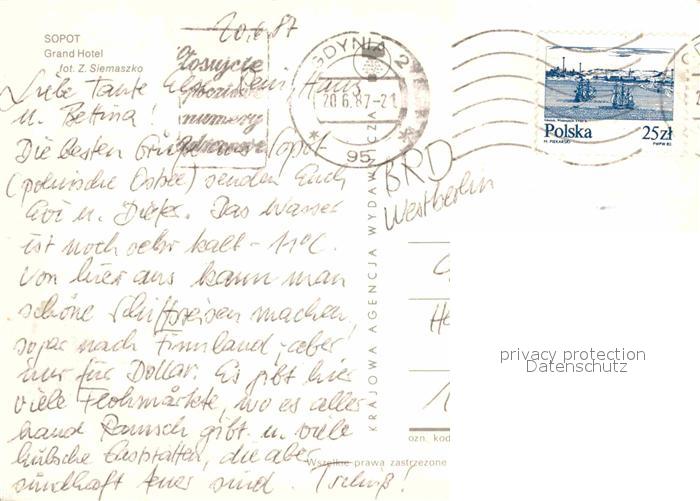 SOPOT
Grand Hotel
fot. Z. Siemaszko
20.6.87
Liebe Tante Hans
u. Bettina!
Die besten Grüße aus Sopot
(polnische Ostsee) senden Euch
Evi u. Dieter. Das Wasser
ist noch sehr kalt - 11°C.
Von hier aus kann man
schöne Schiffsreisen machen,
sogar nach Finnland, aber
nur für Dollar. Es gibt hier
viele Flohmärkte, wo es aller
hand Ramsch gibt u. viele
hübsche Gaststätten, die aber
sündhaft teuer sind. Tschüß!
Stosujcie
pocztowe
numery
adresowe
GDYNIA 2
20.6.87-21
95
Polska 25zł
M. PIEKARSKI PWPW 82
BRD
Westberlin
KRAJOWA AGENCJA WYDAWNICZA
He
1
ozn. kod
Wszelkie prawa zastrzeżone
privacy protection
Datenschutz